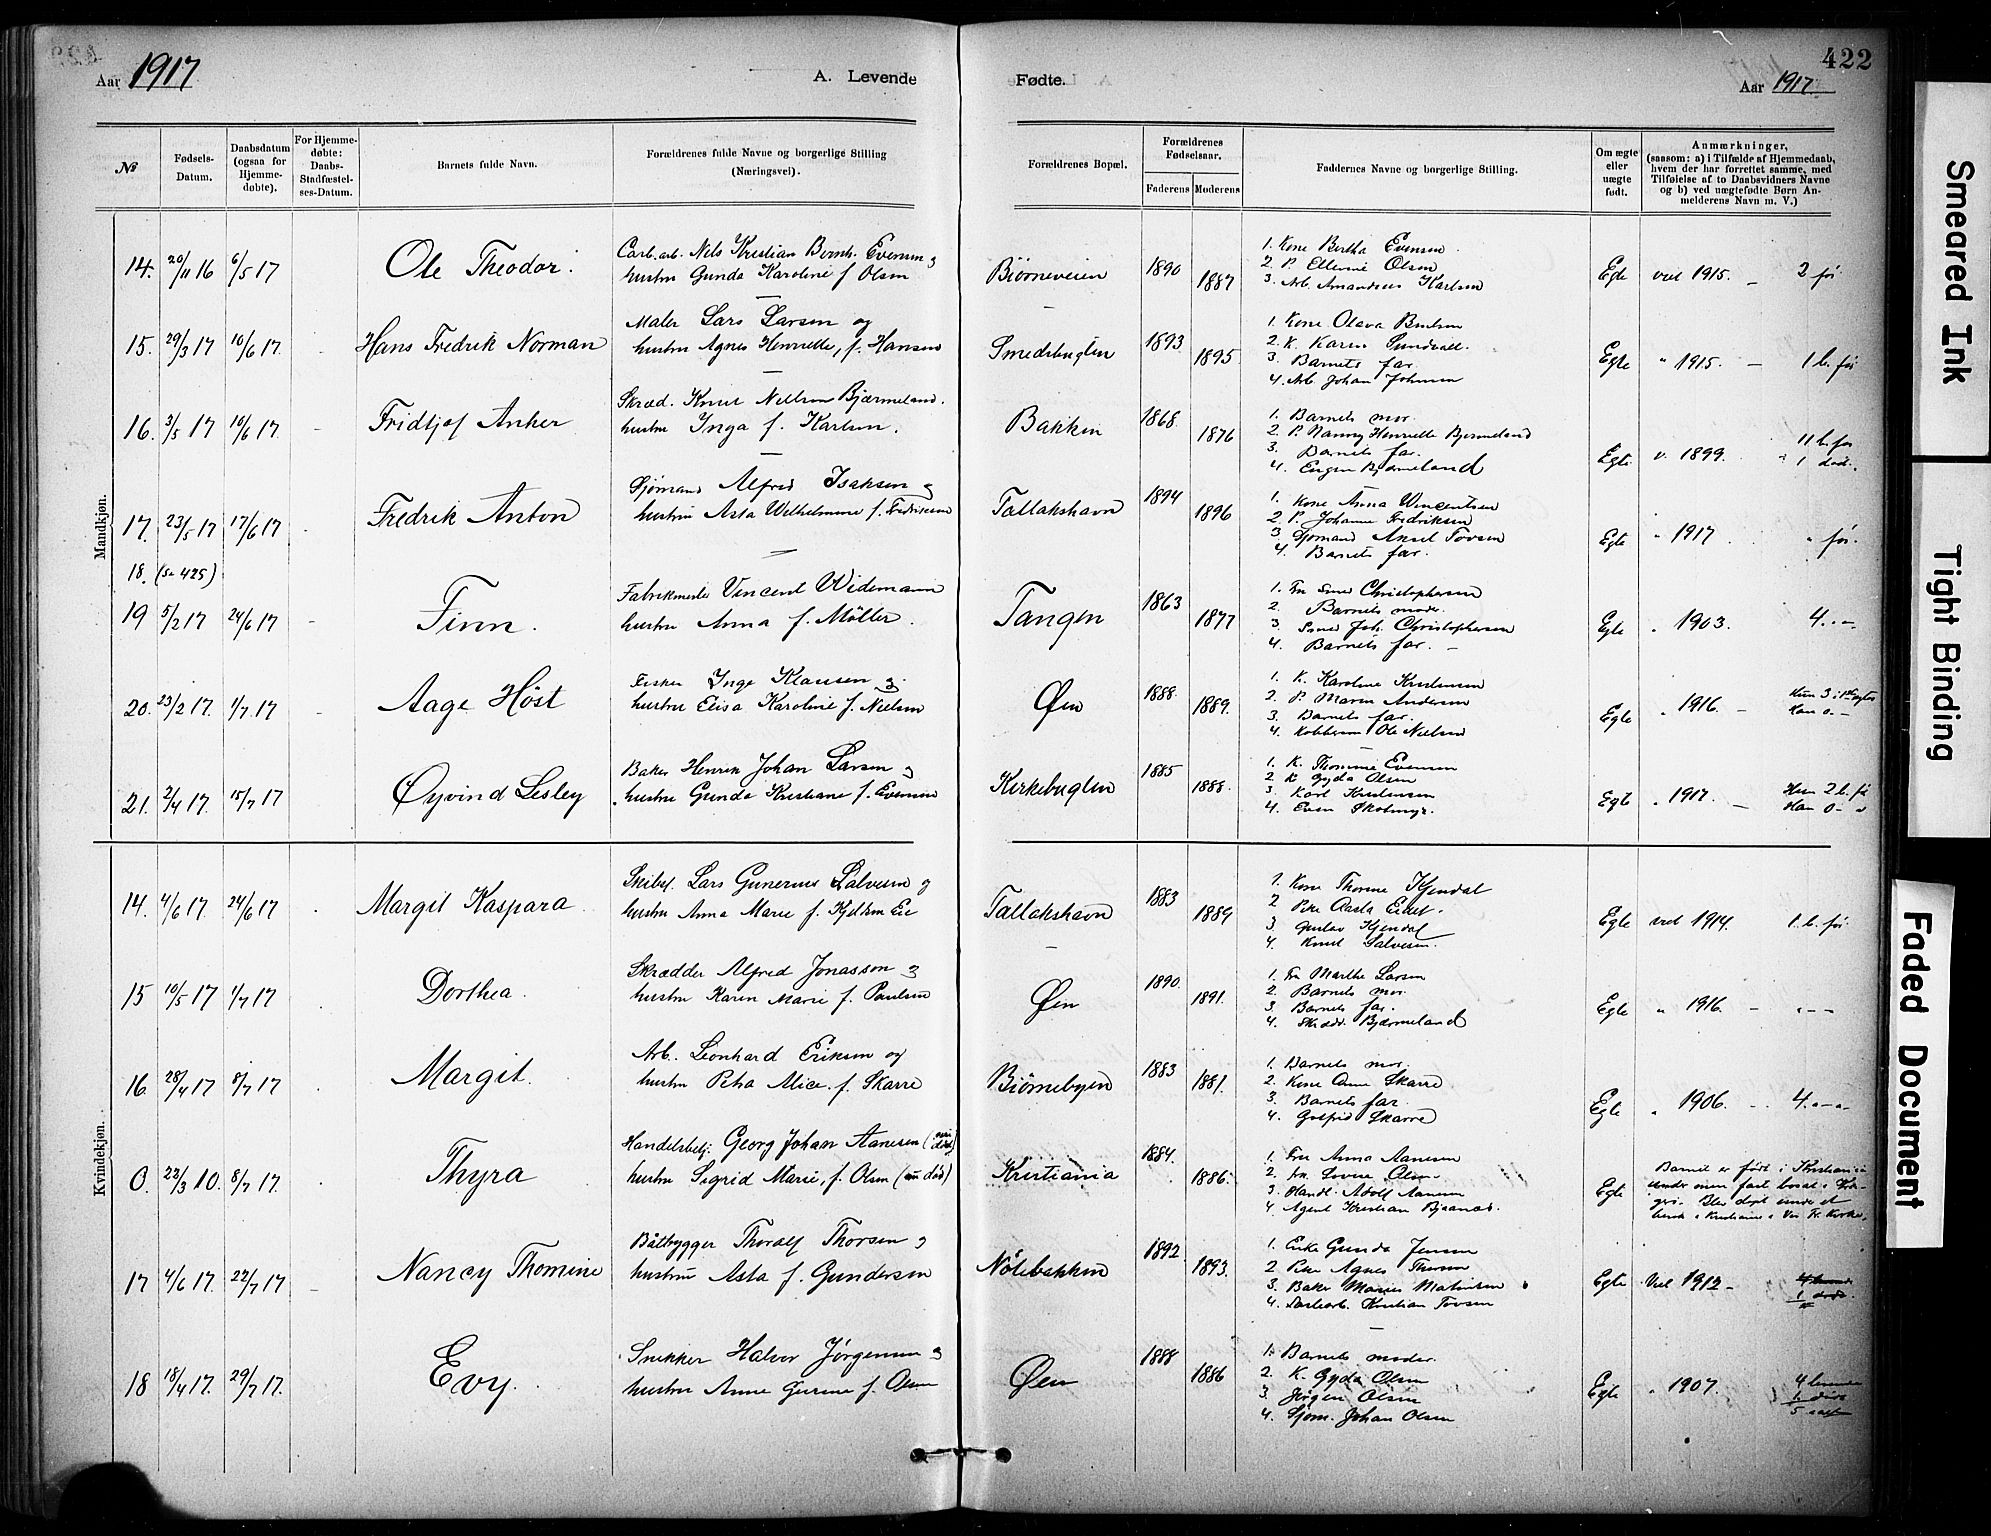 Aar 1917
A. Levende
Fødte.
422
Aar 1917.
№
Fødsels-Datum.
Daabsdatum (ogsaa for Hjemme-døbte).
For Hjemme-døbte: Daabs-Stadfæstel-ses-Datum.
Barnets fulde Navn.
Forældrenes fulde Navne og borgerlige Stilling (Næringsvei).
Forældrenes Bopæl.
Forældrenes Fødselsaar.
Faderens
Moderens
Faddernes Navne og borgerlige Stilling.
Om ægte eller uægte født.
Anmærkninger, (saasom: a) i Tilfælde af Hjemmedaab, hvem der har forrettet samme, med Tilføielse af to Daabsvidners Navne og b) ved uægtefødte Børn An-melderens Navn m. V.)
Mandkjøn.
14. 20/11 16 6/5 17 Ole Theodor.
Nils Kristian Bernh. Evensen og
hustru Gunda Karoline f. Olsen
Bjørneveien 1890 1887
1. Kone Bertha Evensen
2. P. Ellevine Olsen
3. Arb. Amandus Karlsen
Egte viet 1915. – 2 før
15. 29/3 17 10/6 17. Hans Fredrik Norman
Maler Lars Larsen og
hustru Agnes Henriette, f. Hansen
Smedsbugten 1893 1895
1. Kone Olava
2. K. Karen Sundvall.
3. Barnets far.
4. Arb. Johan Johnsen
Egte " 1915. – 1 b. før
16. 3/5 17 10/6 17. Fridtjof Anker
Skræd. Knut Nielsen Bjærmeland.
hustru Inga f. Karlsen.
Bakken 1868. 1876
1. Barnets mor.
2. P. Nanny Henriette Bjærmeland
3. Barnets far.
4. Eugen Bjærmeland
Egte v. 1899. 11 b. før
1 død.
17. 23/5 17 17/6 17 Fredrik Anton
Sjømand Alfred Isaksen og
hustru Asta Wilhelmine f. Fredriksen
Tallakshavn 1894 1896
1. Kone Anna Vincentsen
2. P. Johanne Fredriksen
3. Sjømand Aksel Tovsen
4. Barnets far.
Egte " 1917 " før.
18. (Se 425)
19 5/2 17 24/6 17 Finn.
Fabrikmester Vincent Widemann
hustru Anna f. Møller.
Tangen 1863 1877
1. Fru Christophersen
2. Barnets moder
3. Joh. Christophersen
4. Barnets far. –
Egte " 1903. 4. " –
20. 23/2 17. 1/7 17 Aage Høst
Fisker Inge Klausen og
hustru Elisa Karoline f. Nielsen
Øen 1888. 1889.
1. K. Karoline Kristensen
2. P. Maren Andersen
3. Barnets far.
4. Ole Nielsen
Egte " 1916. – Hun 3 i
Han 0. –
21. 2/4 17. 15/7 17 Øyvind Lesley
Baker Henrik Johan Larsen og
hustru Gunda Kristiane f. Evensen
Kirkebugten 1885 1888.
1. K. Thomine Evensen
2. K. Gyda Olsen
3. Karl Kristensen
4. Even Skotmyr.
Egte " 1917. – Hun 2 b. før
Han 0 – "
Kvindekjøn.
14. 4/6 17. 24/6 17 Margit Kaspara
Lars Gunerius Salvesen og
hustru Anna Marie f.
Tallakshavn 1883 1889
1. Kone Thomine Kjendal
2. Pike Aasta
3. Gustav Kjendal
4. Knut Salvesen.
Egte viet 1914. 1 b. før.
15 10/5 17 1/7 17 Dorthea.
Skrædder Alfred Jonasson og
hustru Karen Marie f. Paulsen
Øen 1890. 1891.
1. Fru Marthe Larsen
2. Barnets mor.
3. Barnets far.
4. Skræd. Bjærmeland
Egte " 1916. – " – –
16 28/4 17 8/7 17 Margit.
Arb. Leonhard Eriksen og
hustru Petra Alice f. Skarre
Bjørnebyen 1883 1881.
1. Barnets mor.
2. Kone Anne Skarre
3. Barnets far
4. Gotfrid Skarre
Egte " 1906. 4. " – " –
0. 22/3 10. 8/7 17. Thyra
Handelsbetj. Georg Johan Aanesen
hustru Sigrid Marie, f. Olsen (nu død)
Kristiania 1884. 1886.
1. Fru Anna Aanesen
2. Fru Lovise Olsen
3. Handl. Adolf Aanesen
4. Agent Kristian Bjaanæs.
Egte Barnet er født i Kristiania
17 4/6 17. 22/7 17 Nancy Thomine
Båtbygger Thoralf Thorsen og
hustru Asta f. Gundersen
Nötebakken 1892. 1893.
1. Enke Gunda Jensen
2. Pike Agnes Thorsen
3. Baker Marius Mathisen
4. Kristian Tovsen
Egte Viet 1912 –
18 18/4 17. 29/7 17. Evy.
Snekker Halvor Jörgensen og
hustru Anne f. Olsen
Øen 1888 1886
1. Barnets moder.
2. K. Gyda Olsen
3. Jörgen Olsen
4. Sjøm. Johan Olsen
Egte " 1907. 4 levende
1 døde
5
Smeared Ink
Tight Binding
Faded Document